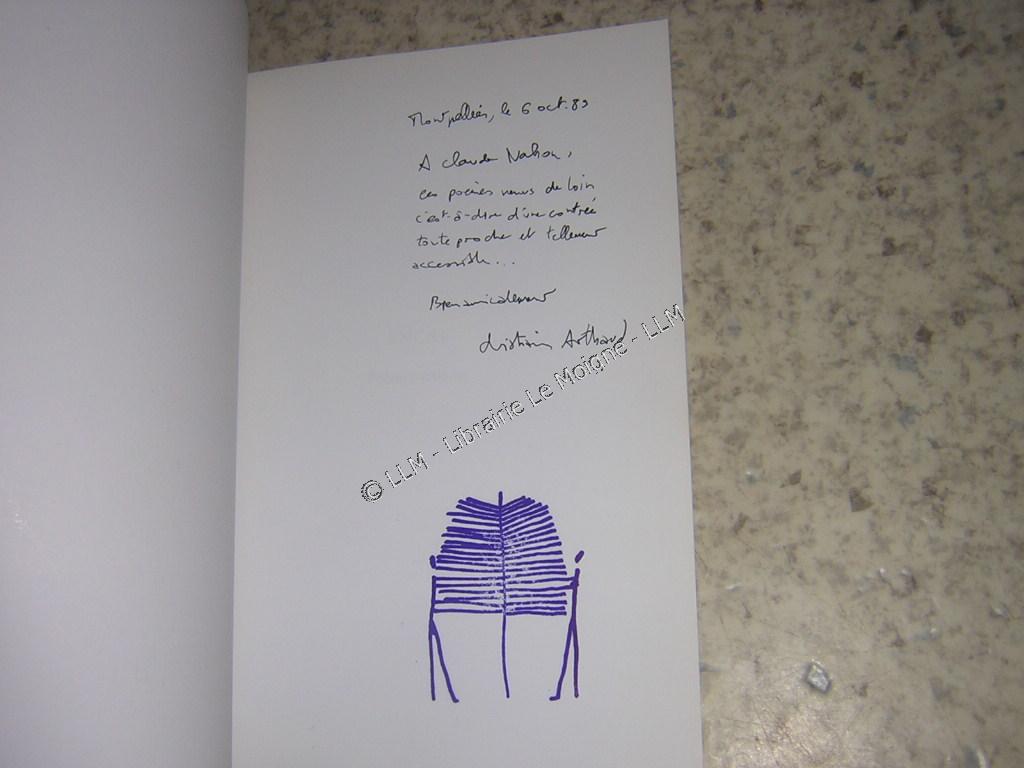 Montpellier, le 6 oct. 89
A Claude Nahon,
ces poèmes venus de loin
c'est-à-dire d'une contrée
toute proche et tellement
accessible...
Bien amicalement
Christian Arthaud
© LLM - Librairie Le Moigne - LLM